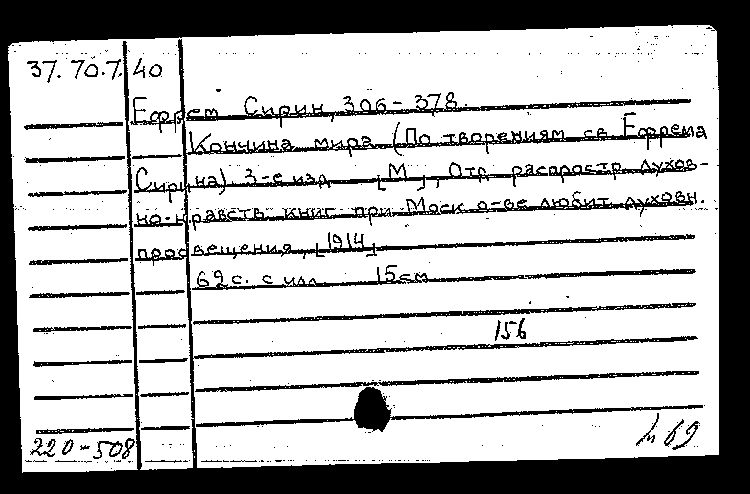 37.70.7.40
Ефрем Сирин, 306-378.
Кончина мира (По творениям св Ефрема
Сирина) 3-е изд [М], Отд распростр духов-
но-нравств книг при Моск о-ве любит духовн.
просвещения, [1914]
62 с. с илл 15 см
156
220-508
69